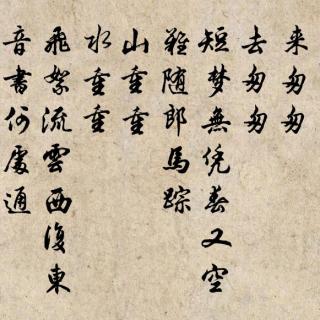 来匆匆
去匆匆
短梦無凭春又空
難随郎馬踪
山重重
水重重
飛絮流雲西復東
音書何處通